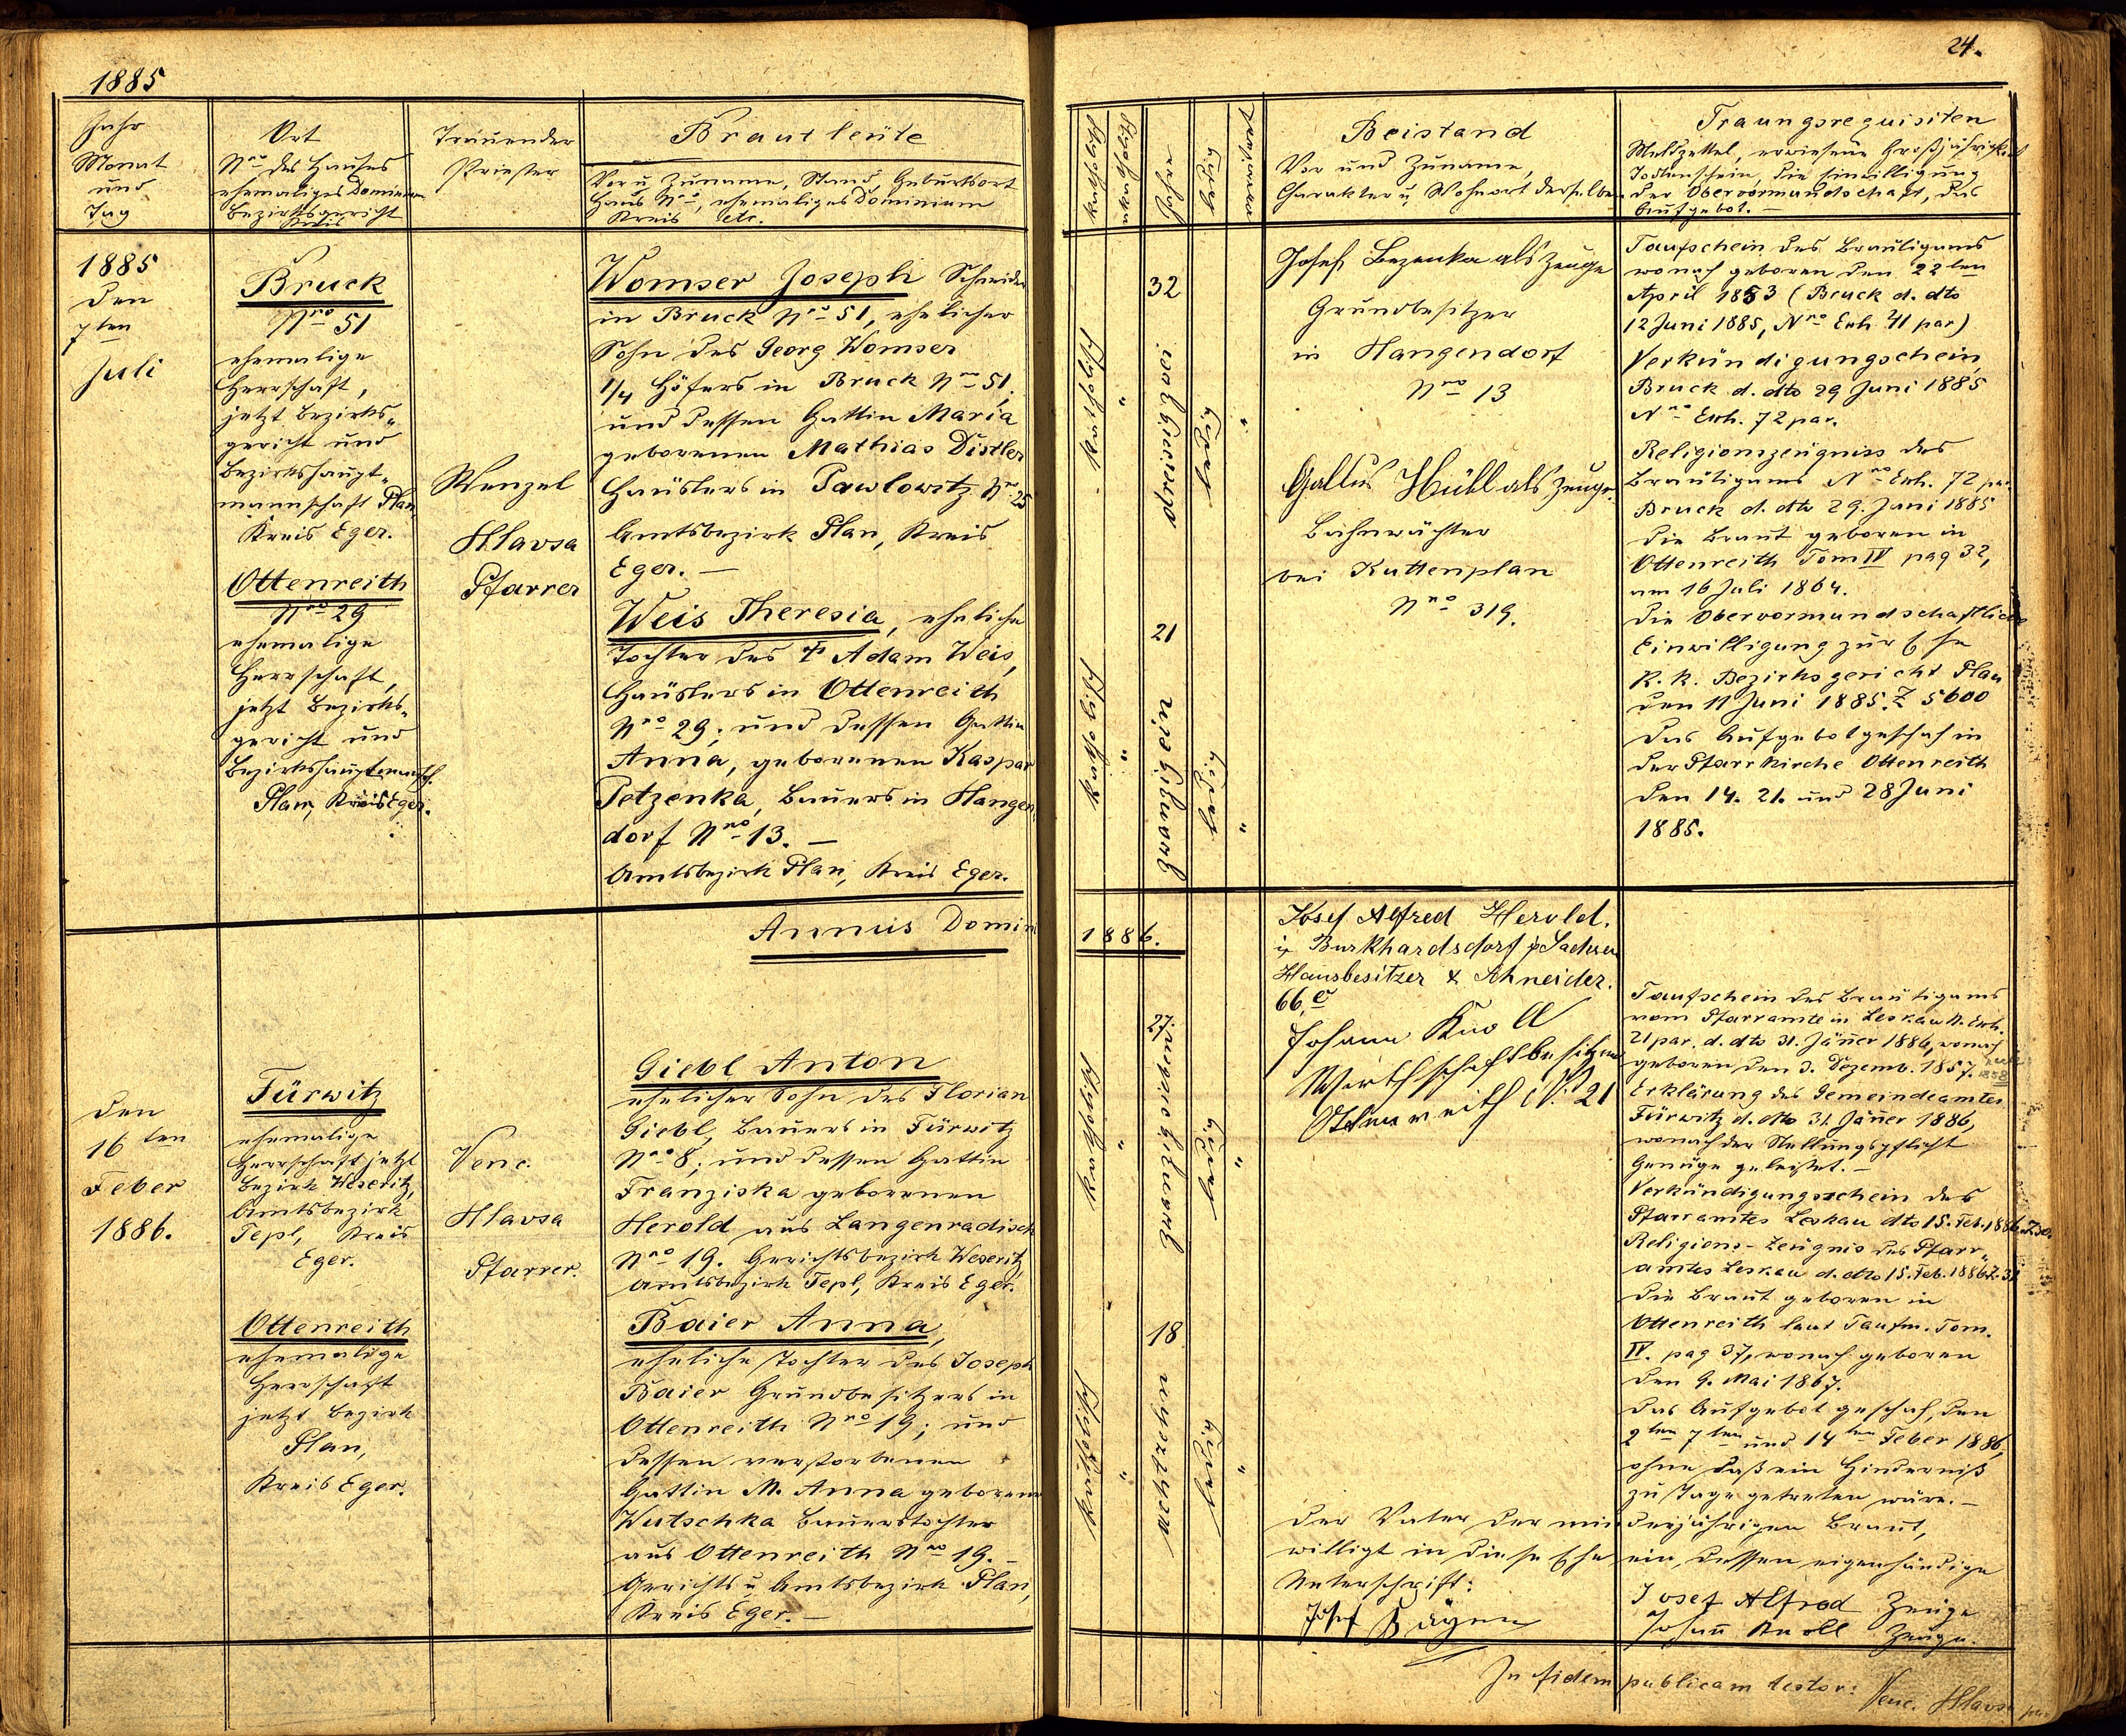 1885
24.
Jahr
Monat
und
Tag
Ort
Nro des Hauses
ehemaliges Dominium
Bezirksgericht
Kreis
Trauender
Priester
Brautleute
Vor u Zuname, Stand, Geburtsort
Haus Nro, ehemaliges Dominium
Kreis etc.
katholisch
akatholisch
Jahre
ledig
verwitwet
Beistand
Vor und Zuname,
Charakter u Wohnort derselben
Traungsrequisiten
Meldzettel, erwiesene Großjährigkeit
Todtenschein, die Einwilligung
der Obervormundschaft, das
Aufgebot. —
1885
den
7ten
Juli
Bruck
Nro 51
ehemalige
Herrschaft,
jetzt Bezirks„
gericht und
Bezirkshaupt„
mannschaft Plan
Kreis Eger.
Ottenreith
Nro 29
ehemalige
Herrschaft,
jetzt Bezirks„
gericht und
Bezirkshauptmansch.
Plan, Kreis Eger.
Wenzel
Hlavsa
Pfarrer
Womser Joseph Schneider
in Bruck Nro 51, ehelicher
Sohn des Georg Womser
1/4 Höfers in Bruck Nro 51;
und dessen Gattin Maria
geborenen Mathias Distler
Häuslers in Pawlowitz Nr. 25
Amtsbezirk Plan, Kreis
Eger. —
Weis Theresia, eheliche
Tochter des † Adam Weis,
Häuslers in Ottenreith
Nro 29; und dessen Gattin
Anna, geborenen Kaspar
Petzenka, Bauers in Hangen
dorf Nro 13. —
Amtsbezirk Plan, Kreis Eger.
katholisch
"
32
dreißig zwei
ledig
"
katholisch
"
21
zwanzig ein
ledig
"
Josef Bezenka als Zeuge
Grundbesitzer
in Hangendorf
Nro 13
Gallus Hühl als Zeuge
Bahnwächter
bei Kuttenplan
Nro 319.
Taufschein des Bräutigams
wonach geboren den 22ten
April 1853 (Bruck d. dto
12 Juni 1885, Nro Exh. 41 par)
Verkündigungschein,
Bruck d. dto 29 Juni 1885
Nro Exh. 72 par.
Religionszeugniss des
Bräutigams Nro Exh. 72 par.
Bruck d. dto 29. Juni 1885
Die Braut geboren in
Ottenreith Tom IV pag 32,
am 16 Juli 1864.
Die Obervormundschaftliche
Einwilligung zur Ehe
K. K. Bezirksgericht Plan
den 11 Juni 1885. Z 5600
Das Aufgebot geschah in
der Pfarrkirche Ottenreith
den 14. 21. und 28 Juni
1885.
Annus Domini
1886.
den
16ten
Feber
1886.
Fürwitz
ehemalige
Herrschaft jetzt
Bezirk Weseritz,
Amtsbezirk
Tepl, Kreis
Eger.
Ottenreith
ehemalige
Herrschaft
jetzt Bezirk
Plan,
Kreis Eger.
Venc.
Hlavsa
Pfarrer.
Giebl Anton
ehelicher Sohn des Florian
Giebl, Bauers in Fürwitz
Nro 8; und dessen Gattin
Franziska geborenen
Herold aus Langenradisch
Nro 19. Gerichtsbezirk Weseritz
Amtsbezirk Tepl, Kreis Eger.
Baier Anna,
eheliche Tochter des Joseph
Baier Grundbesitzers in
Ottenreith Nro 19; und
dessen verstorbenen
Gattin M. Anna geborene
Wutschka Bauerstochter
aus Ottenreith Nro 19. —
Gerichts u Amtsbezirk Plan,
Kreis Eger. —
katholisch
"
27
zwanzig sieben
ledig
"
katholisch
"
18
achtzehn
ledig
"
Josef Alfred Herold.
in Burkhardsdorf in Sachsen
Hausbesitzer & Schneider.
66
Johann Knoll
Wirthschaftbesitzer
Ottenreith No 21
Taufschein des Bräutigams
vom Pfarramte in Leskau N. Exh.
21 par. d. dto 31. Jäner 1886, wonach
geboren den 3. Dezemb. 1857.
1858
Erklärung des Gemeindeamtes
Fürwitz d. dto 31. Jäner 1886,
wonach der Stellungspflicht
Genüge geleistet. —
Verkündigungsschein des
Pfarramtes Leskau dto 15. Feb. 1886.
Religions-Zeugnis des Pfarr„
amtes Leskau d. dto 15. Feb. 1886 Z. 31
Die Braut geboren in
Ottenreith laut Taufm. Tom.
IV. pag 37, wonach geboren
den 9. Mai 1867.
Das Aufgebot geschah, den
2ten 7ten und 14ten Feber 1886,
ohne daß ein Hinderniß
zu Tage getreten wäre. —
Der Vater der minderjährigen Braut,
willigt in diese Ehe ein, dessen eigenhändige
Unterschrift:
Josef Alfred Zeuge
Josef Bayer
Johann Knoll Zeuge.
In fidem publicam testor: Venc. Hlavsa